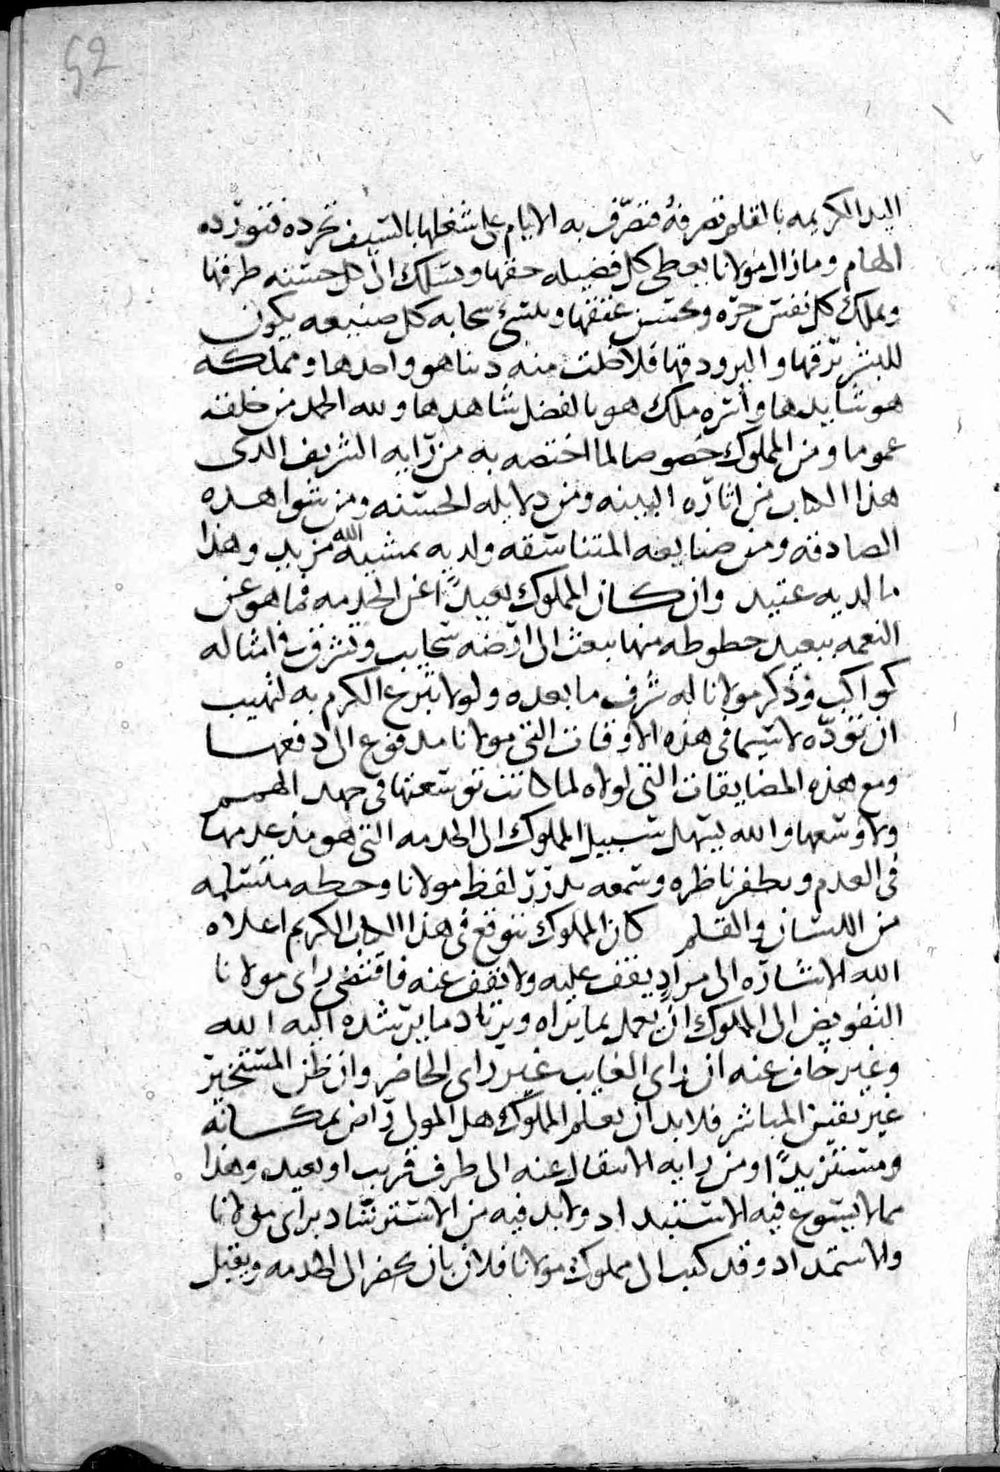 52
اليد الكريمه بالقلم تصرفه فتصرّف به الايام على شغلها بالسيف تجرده فتورّده
الهام وما زال مولانا يعطى كل فضيله حقها ويسلك الى كل حسنه طرقها
ويملك كل نفس حرّه ويحتسب عتقها وينشئ سحابه كل صنيعه يكون
للبشر برقها والبرودقها فلا خلت منه دنيا هو واحدها ومملكه
هو شايدها وأثره ملك هو بالفضل شاهدها ولله الحمد من خلقه
عموما ومن المملوك خصوصا لما اختصه به من رأيه الشريف الذى
هذا الكتاب من اثاره البينه ومن دلايله الحسنه ومن شواهده
الصادقه ومن صنايعه المتناسقه ولديه بمشيه الله مزيد وهذا
ما لديه عتيد وان كان المملوك بعيدًا عن الخدمه فما هو عن
النعمه ببعيد حظوظه منها تبعث الى ارضه سحايب وتشرف فى امثاله
كواكب وذكر مولانا له شرف ما بعده ولولا تبرع الكرم به لتهيب
ان تؤدّه لاسيما فى هذه الاوقات التى مولانا مدفوع الى دفعها
ومع هذه المضايقات التى لولاه لما كانت توسعتها فى جهد الهمم
ولا وسعها والله يسهل سبيل المملوك الى الخدمه التى هو مذ عدمها
فى العدم ويظفر ناظره وسمعه بدرر لفظ مولانا وخطه منتشله
من اللسان والقلم كان المملوك يتوقع فى هذا الكتاب الكريم اعلاه
الله الاشاره الى مراد يقف عليه ولا يقف عنه فاقتضى راى مولانا
التفويض الى المملوك ان يعمل بما يراه ويرتاد ما يرشده اليه الله
وغير خاف عنه ان راى الغايب غير راى الحاضر وان ظن المستخبر
غير يقين المباشر فلا بد ان يعلم المملوك هل المولى راض بمكانه
ومستقر يدًا ومن رايه الانتقال عنه الى طرف قريب او بعيد وهذا
مما لا يسوغ فيه الاستبداد ولا بد فيه من الاسترشاد براى مولانا
والاستمداد وقد كتب الى مملوك مولانا فلان بان يحضر الى الخدمه ويقبل